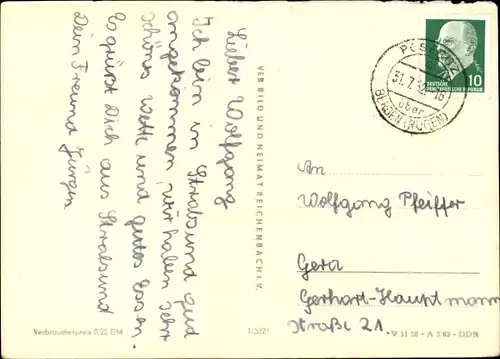 Lieber Wolfgang
Ich bin in Stralsund gut
angekommen, wir haben sehr
schönes Wetter und gutes Essen.
Es grüßt Dich aus Stralsund
Dein Freund Jürgen
VEB BILD UND HEIMAT REICHENBACH I. V.
31.7.
über
BERGEN (RÜGEN)
DEUTSCHE
DEMOKRATISCHE REPUBLIK
10
An
Wolfgang Pfeiffer
Gera
Gerhart-Hauptmann
Straße 21
Verbraucherpreis 0,25 DM